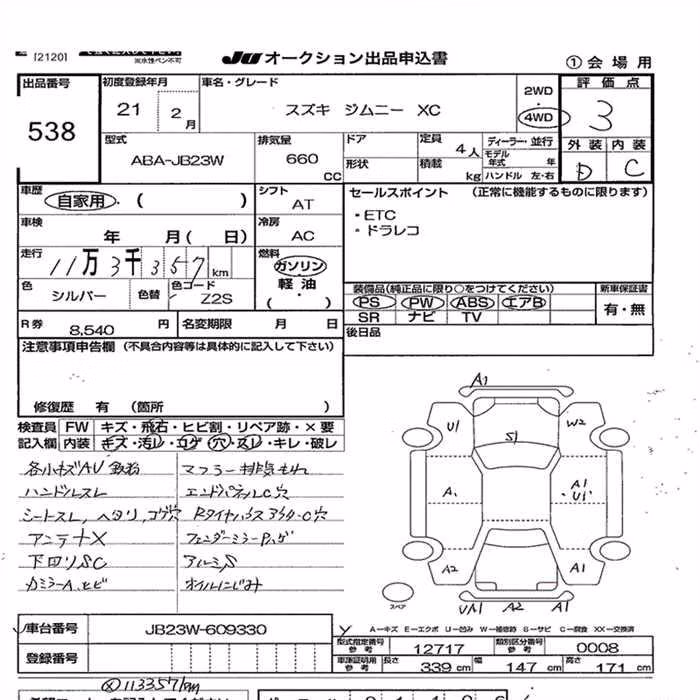 [2120] ※水性ペン不可 JU オークション出品申込書 ①会場用
出品番号 538
初度登録年月 21 2月
車名・グレード スズキ ジムニー XC
2WD・4WD
評価点 3
外装 内装
D C
型式 ABA-JB23W
排気量 660 CC
ドア 形状
定員 4人
積載 kg
ディーラー・並行
モデル年式 年
ハンドル 左・右
車歴 自家用・( )
シフト AT
セールスポイント (正常に機能するものに限ります)
・ETC
・ドラレコ
車検 年 月( 日)
冷房 AC
走行 11万3千357km
燃料 ガソリン 軽油 ・( )
色 シルバー 色替
色コード Z2S
装備品(純正品に限り○をつけてください) 新車保証書
PS PW ABS エアB 有・無
SR ナビ TV
R券 8,540 円 名変期限 月 日
後日品
注意事項申告欄 (不具合内容等は具体的に記入して下さい)
修復歴 有 (箇所 )
検査員 FW キズ・飛石・ヒビ割・リペア跡・×要
記入欄 内装 キズ・汚レ・コゲ・穴・スレ・キレ・破レ
各小キズAU飛石 マフラー排気もれ
ハンドルスレ エンドパネルC穴
シートスレ,ヘタリ,コゲ穴 Rタイヤハウス C穴
アンテナX フェンダーミラー
下回りSC アルミS
カラミラーA,ヒビ オイルにじみ
A1
U1 W2
S1
A1 A1
U1
A2 A1
スペア UA1 A2 A1
A－キズ E－エクボ U－凹み W－補修跡 S－サビ C－腐食 XX－交換済
車台番号 JB23W-609330
型式指定番号 参考 12717 類別区分番号 参考 0008
登録番号
車庫証明用 参考 長さ 339 cm 幅 147 cm 高さ 171 cm
113357km